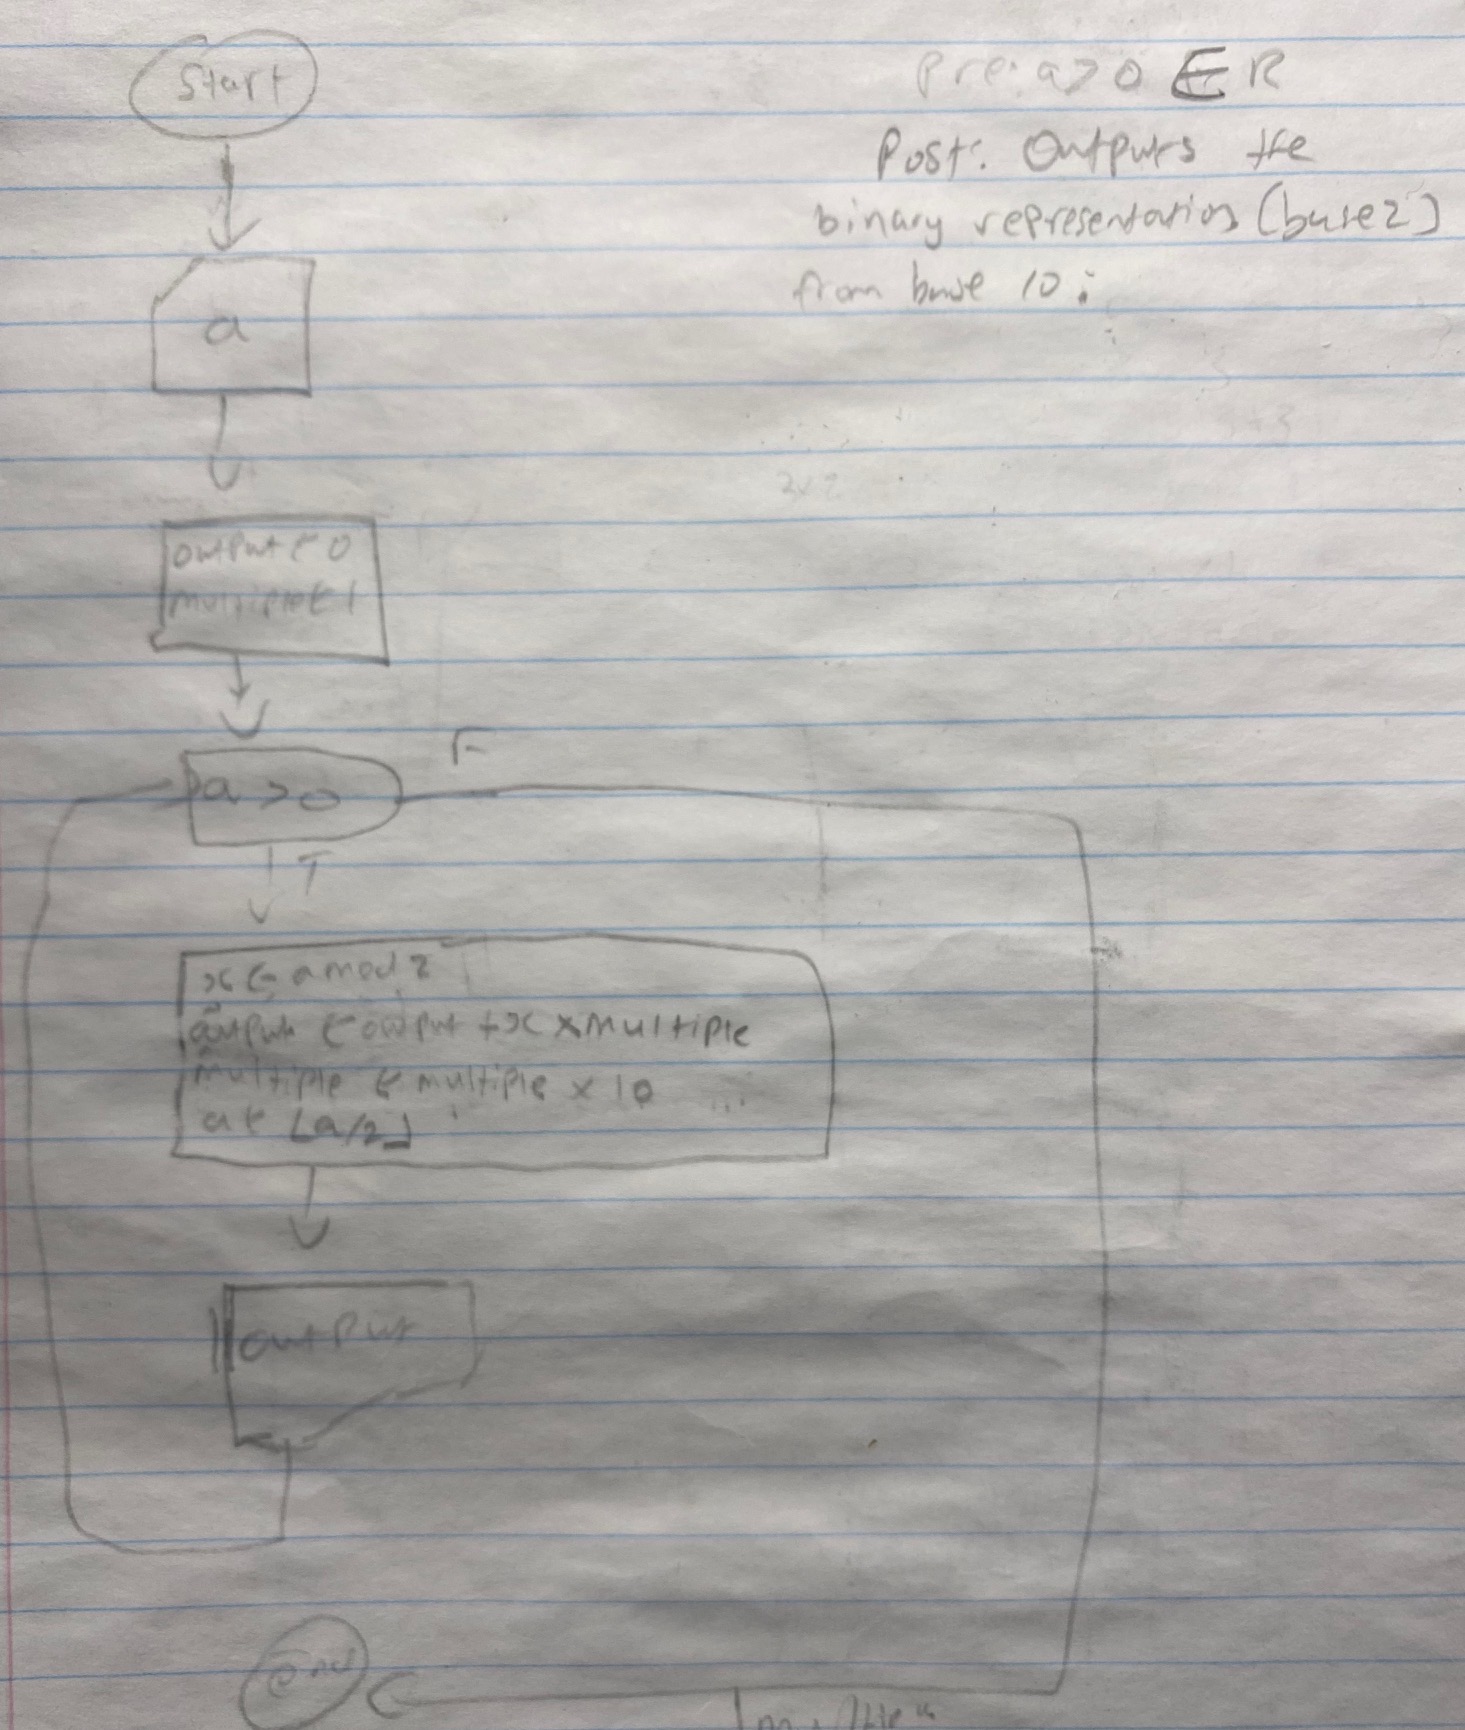 Start
pre: a > 0 ∈ R
Post: Outputs the
binary representation (base 2)
from base 10:
a
output ← 0
multiple ← 1
a > 0
F
T
x ← a mod 2
output ← output + x × multiple
multiple ← multiple × 10
a ← ⌊a/2⌋
output
end